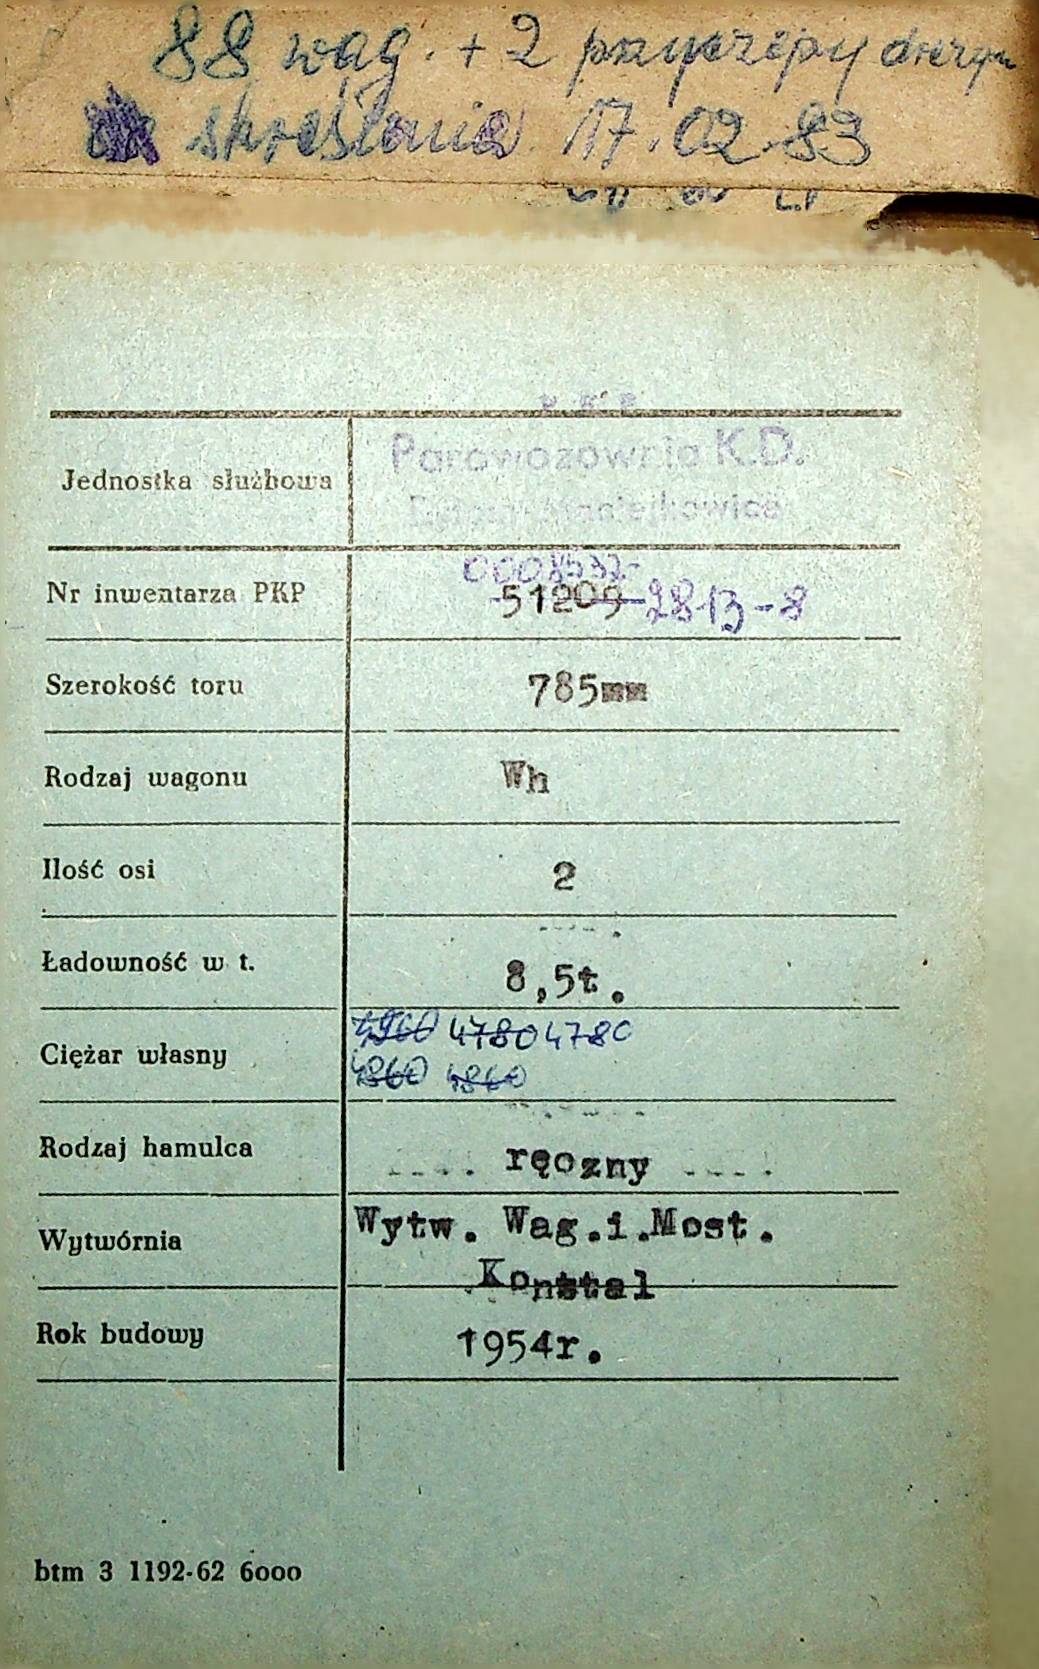 88 wag. + 2 przyczepy drezyn
skreślenie 17.02.83
P. K. P.
Jednostka służbowa Parowozownia K.D.
0008532-
Nr inwentarza PKP 51209 2813-8
Szerokość toru 785mm
Rodzaj wagonu Wh
Ilość osi 2
Ładowność w t. 8,5t.
4780 4780
Ciężar własny
4860 4860
Rodzaj hamulca ręozny
Wytw. Wag.i.Most.
Wytwórnia
Konstal
Rok budowy 1954r.
btm 3 1192-62 6ooo